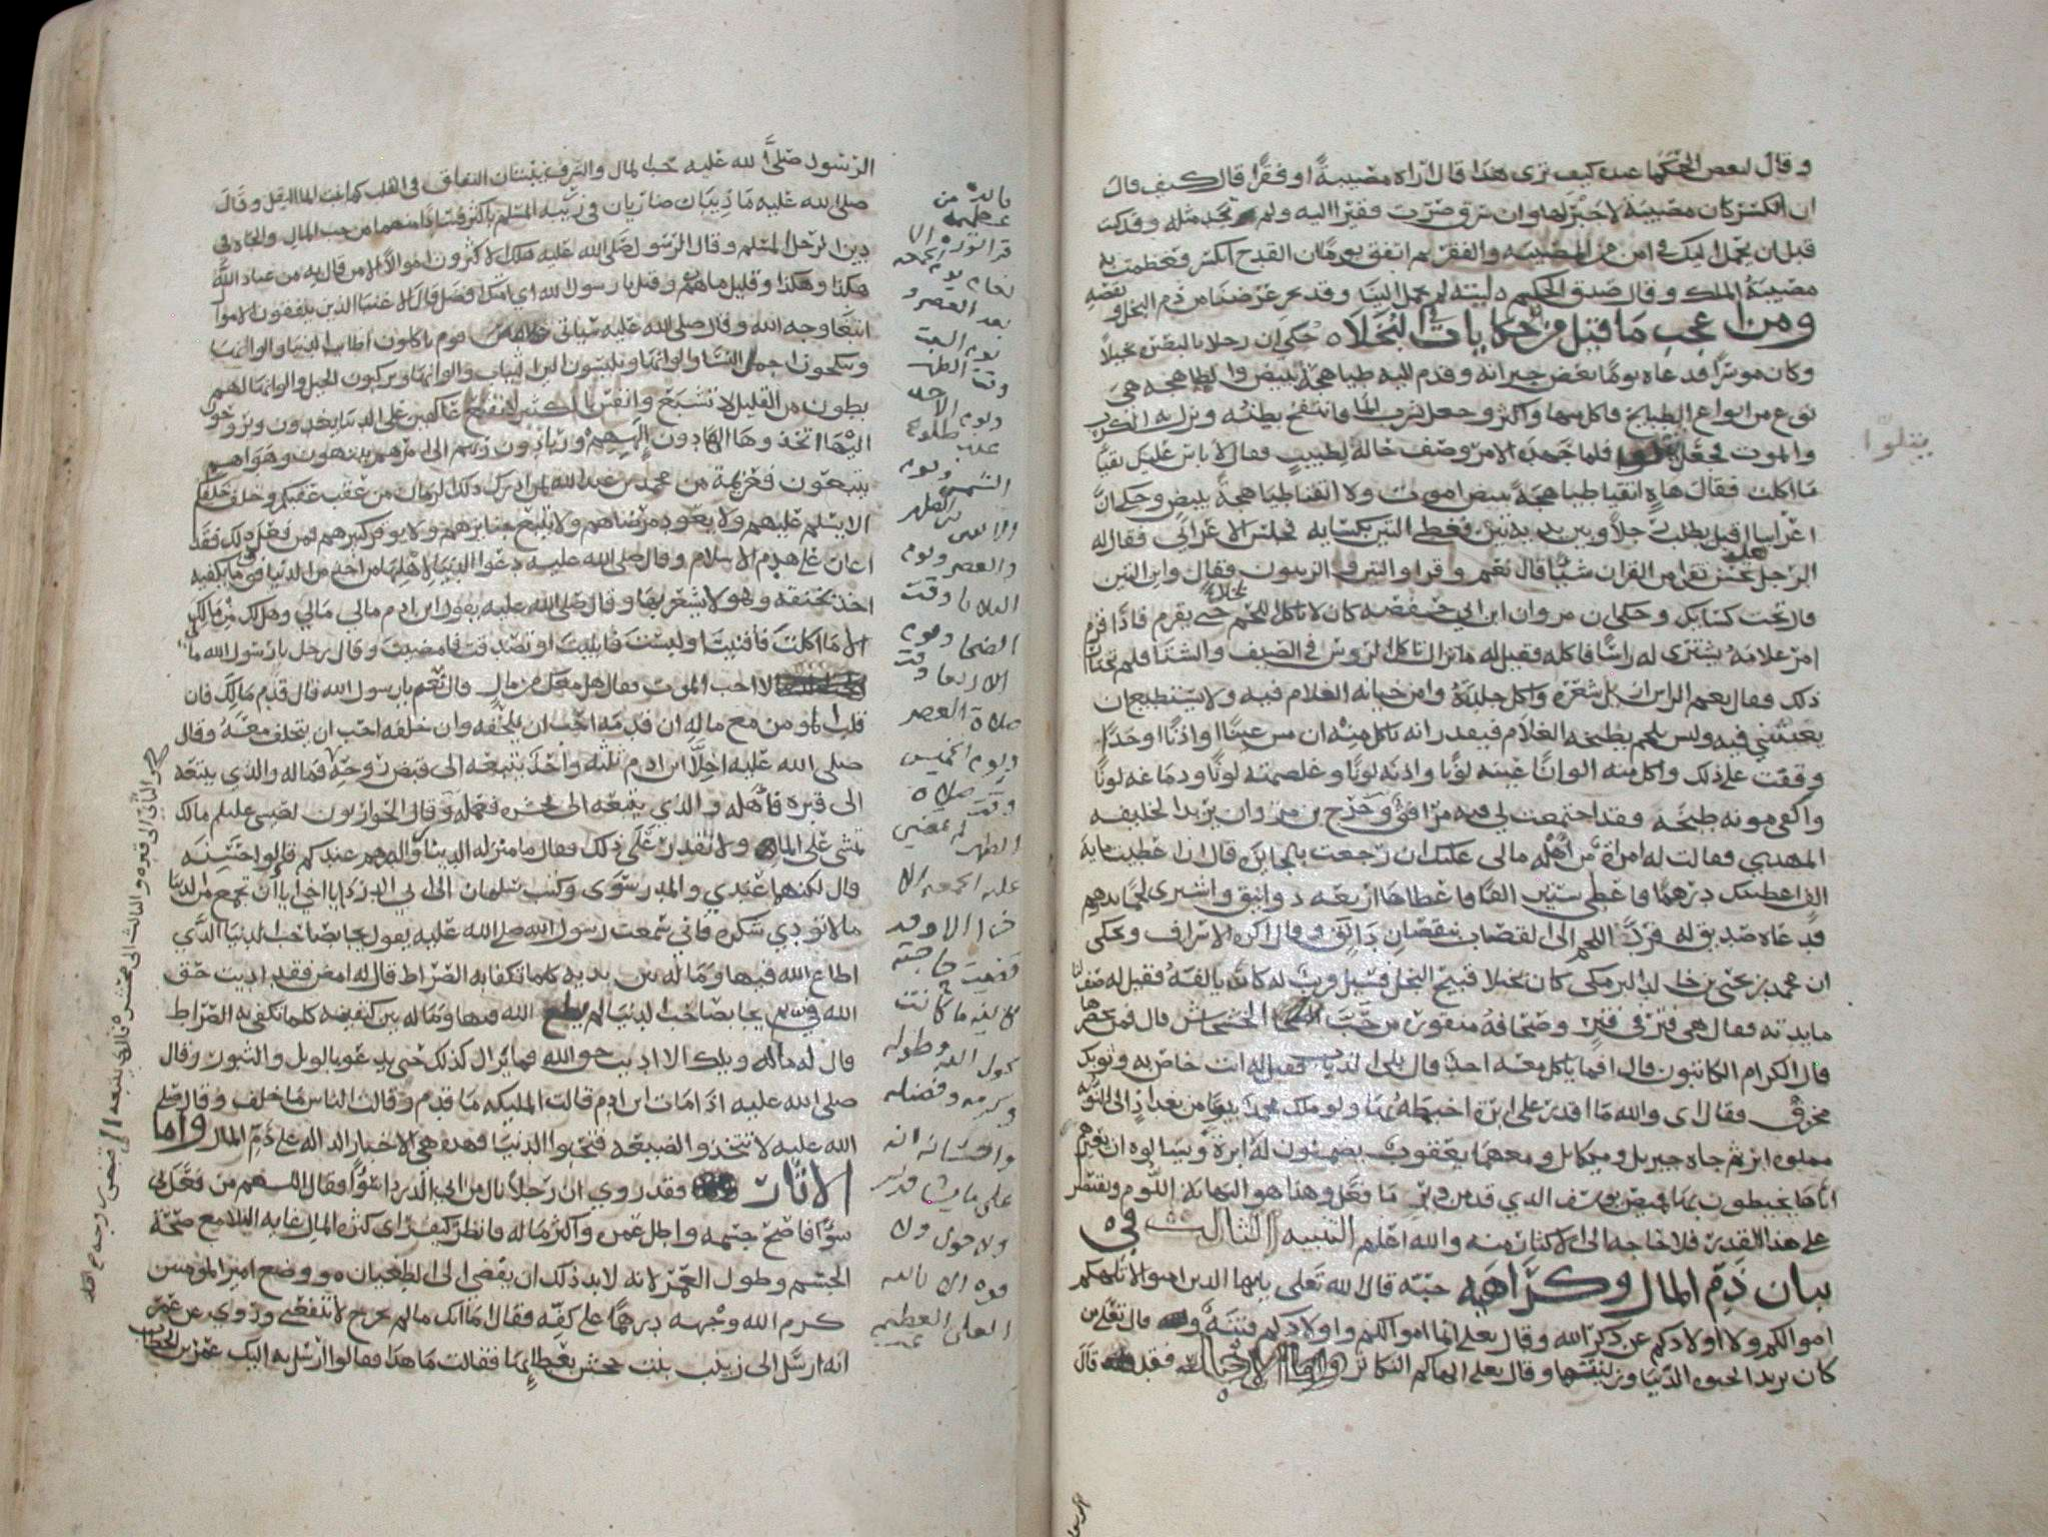 وقال لبعض الحكما عنده كيف ترى هذا قال اراه مصيبة او فقرا قال كيف قال
ان انكسر كان مصيبة لا جبر لها وان سرق صرت فقيرا اليه ولم تجد مثله وقد كنت
قبل ان يحمل اليك في امن من المصيبه والفقر ثم اتفق يوما ان القدح انكسر فعظمت به
مصيبة الملك وقال صدق الحكيم ليته لم يحمل الينا وقد نجز غرضنا من ذم البخل و
ومن عجب ما قيل من حكايات البخلاه حكي ان رجلا بالبصره بخيلا
وكان موسرا فدعاه يوما بعض جيرانه وقدم اليه طباهجة ببيض والطباهجه هي
نوع من انواع الطبايخ فاكل منها واكثر وجعل يشرب الما وانتفخ بطنه ونزل به الكرب
والموت فجعل يتلوا فلما جهده الامر وصف حاله لطبيب فقال لا باس عليك تقيا
ما اكلت فقال هاه اتقيا طباهجة ببيض اموت ولا اتقيا طباهجة ببيض وحكي ان
اعرابيا اقبل يطلب رجلا وبين يديه تين فغطى التين بكسايه فجلس الاعرابي فقال له
الرجل تحسن تقرا من القران شيا قال نعم وقرا والزيتون فقال واين التين
قال تحت كسايك وحكي ان مروان ابن ابي حفصه كان لا ياكل اللحم بخلا حتى يقرم فاذا قرم
امر غلامه يشتري له راسا فاكله فقيل له ما نراك تاكل الا الروس في الصيف والشتا فلم تختار
ذلك فقال نعم الراس اعرف سعره وامن خيانة الغلام فيه ولا يستطيع ان
يغبنني فيه وليس بلحم يطبخه الغلام فيقدر انه ياكل منه ان مس عينا او اذنا او خدا
وقفت على ذلك واكل منه الوانا عينه لونا واذنه لونا وغلصمته لونا ودماغه لونا
واكفى مونه طبخه فقد اجتمعت لي فيه مرافق وخرج مروان يريد الخليفه
المهدي فقالت له امراة من اهله مالي عليك ان رجعت بالجايزه قال ان اعطيت ماية
الف اعطيتك درهما فاعطي ستين الفا فاعطاها اربعه دوانق واشترى لحما بدرهم
فدعاه صديق له فرد اللحم الى القصاب بنقصان دانق وقال اكره الاسراف ويحكى
ان محمد بن يحيى بن خالد البرمكي كان بخيلا قبيح البخل فسيل نسيب له كان يالفه فقيل له صف لنا
مايدته فقال هي فتر في فتر وصحافه منقوره من حب الخشخاش قال فمن يحضرها
قال الكرام الكاتبون قال افما ياكل معه احد قال بلى الذباب فقيل له انت خاص به وثوبك
مخرق فقال اي والله ما اقدر على ابرة اخيطه بها ولو ملك محمد بيتا من بغداد الى النوبه
مملوه ابر ثم جاه جبريل وميكايل ومعهما يعقوب يضمنون له ابرة ويسالوه ان يعيرهم
اياها يخيطون بها قميص يوسف الذي قد من دبر ما فعل وهذا هو النهاية في اللوم ونقتصر
على هذا القدر فلا حاجه الى الاكثار منه والله اعلم التنبيه الثالث في
بيان ذم المال وكراهه حبه قال الله تعلى يايها الذين امنوا لا تلهكم
اموالكم ولا اولادكم عن ذكر الله وقال تعلى انما اموالكم واولادكم فتنة وقال تعلى من
كان يريد الحيوه الدنيا وزينتها وقال تعلى الهاكم التكاثر واما الاخبار فقد قال
يتلوا
الرسول صلى الله عليه حب المال والشرف ينبتان النفاق في القلب كما ينبت الما البقل وقال
صلى الله عليه ما ذيبان ضاريان في زريبه الغنم باكثر فسادا منهما من حب المال والجاه في
دين الرجل المسلم وقال الرسول صلى الله عليه هلك الاكثرون اموالا الا من قال به من عباد الله
هكذا وهكذا وقليل ما هم وقيل يا رسول الله اي امتك افضل قال الاغنيا الذين ينفقون الاموال
ابتغا وجه الله وقال صلى الله عليه سياتي قوم ياكلون اطايب الدنيا والوانها
وينكحون اجمل النسا والوانها ويلبسون الين الثياب والوانها ويركبون الخيل والوانها لهم
بطون من القليل لا تشبع وانفس بالكثير لا تقنع عاكفين على الدنيا يغدون ويروحون
اليها اتخذوها الها دون الههم وربا دون ربهم الى امرهم ينتهون وهواهم
يتبعون فعزيمة من محمد بن عبد الله لمن ادرك ذلك الزمان من عقب عقبكم وخلف خلفكم
الا يسلم عليهم ولا يعود مرضاهم ولا يتبع جنايزهم ولا يوقر كبيرهم فمن فعل ذلك فقد
اعان على هدم الاسلام وقال صلى الله عليه دعوا الدنيا لاهلها من اخذ من الدنيا فوق ما يكفيه
اخذ حتفه وهو لا يشعر بها وقال صلى الله عليه يقول ابن ادم مالي مالي وهل لك من مالك
الا ما اكلت فافنيت او لبست فابليت او تصدقت فامضيت وقال رجل يا رسول الله ما لي
لا احب الموت فقال هل معك من مال قال نعم يا رسول الله قال قدم مالك فان
قلب المومن مع ماله ان قدمه احب ان يلحقه وان خلفه احب ان يتخلف معه وقال
صلى الله عليه اخلا ابن ادم ثلثه واحد يتبعه الى قبض روحه فماله والذي يتبعه
الى قبره فاهله والذي يتبعه الى محشره فعمله وقال الحواريون لعيسى عليلم مالك
تمشي على الما ولا نقدر على ذلك فقال ما منزله الدينار والدرهم عندكم قالوا حسنه
قال لكنهما عندي والمدر سوى وكتب سلمان الى ابي الدردا يا اخي اياك ان تجمع من الدنيا
ما لا تودي شكره فاني سمعت رسول الله صلى الله عليه يقول يجا بصاحب الدنيا الذي
اطاع الله فيها وماله بين يديه كلما تكفا به الصراط قال له امض فقد اديت حق
الله في ثم يجا بصاحب الدنيا لم يطع الله فيها وماله بين كتفيه كلما تكفى به الصراط
قال له ماله ويلك الا اديت حق الله فما يزال كذلك حتى يدعو بالويل والثبور وقال
صلى الله عليه اذا مات ابن ادم قالت المليكه ما قدم وقالت الناس ما خلف وقال صلى
الله عليه لا تتخذو الضيعه فتحبوا الدنيا فهذه هي الاخبار الداله على ذم المال واما
الاثار فقد روي ان رجلا نال من ابي الدردا سوا فقال اللهم من فعل بي
سوا فاصح جسمه واطل عمره واكثر ماله فانظر كيف راى كثره المال غايه البلا مع صحة
الجسم وطول العمر لانه لا بد ذلك ان يفضي الى الطغيان ه ووضع امير المومنين
كرم الله وجهه درهما على كفه فقال اما انك ما لم تخرج لا تنفعني وروي عن عمر
انه ارسل الى زينب بنت جحش بعطايها فقالت ما هذا فقالوا ارسل به اليك عمر بن الخطاب
فايده من
عظيمه
بعد العصر و
يوم السبت
وقت الظهر
ويوم الاحد
عند طلوع
الشمس ويوم
والعصر ويوم
الثلاثا وقت
الضحا ويوم
الاربعا وقت
صلاة العصر
ويوم الخميس
وقت صلاه
الظهر
قضيت حاجته
ما كانت
بحول الله وطوله
وكرمه وفضله
واحسانه انه
على ما يشا قدير
ولا حول ولا
قوه الا بالله
العلي العظيم
والثاني الى قبره والثالث الى محشره فالذي يتبعه الى قبض روحه